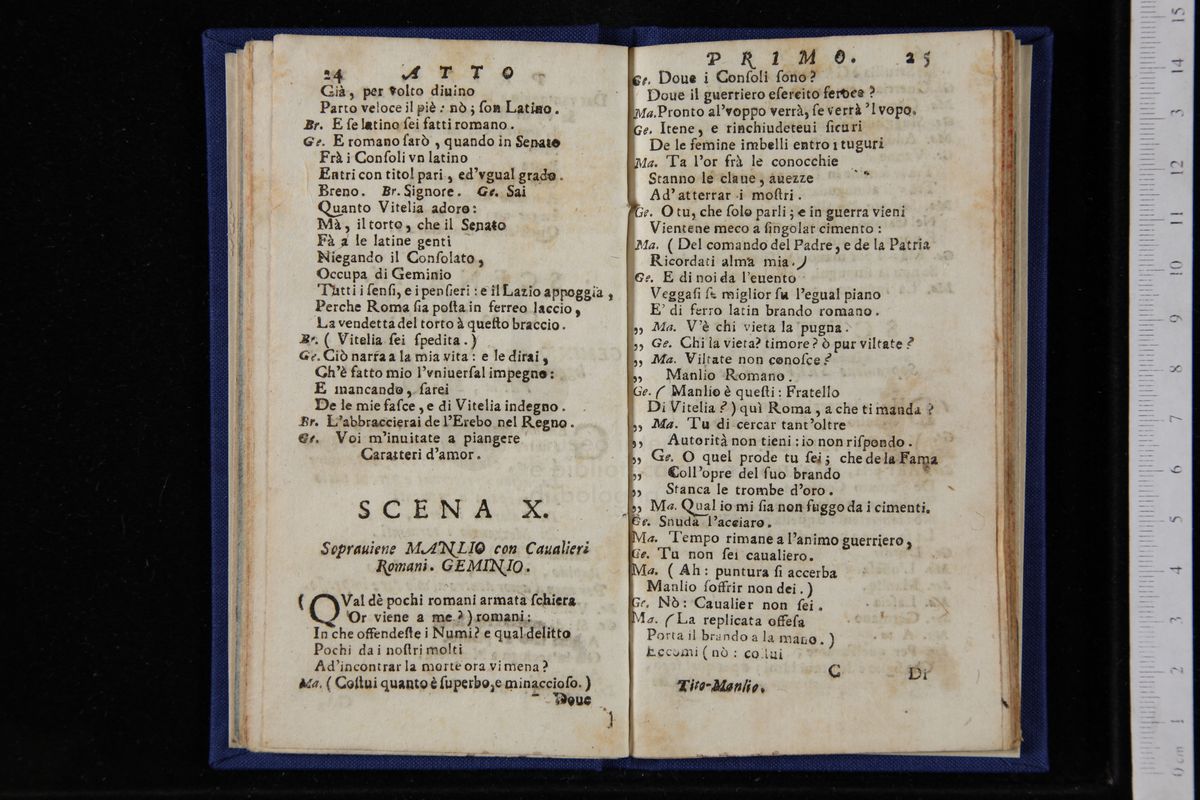 24 ATTO
Già, per volto diuino
Parto veloce il piè: nò; son Latino.
Br. E se latino sei fatti romano.
Ge. E romano sarò, quando in Senato
Frà i Consoli vn latino
Entri con titol pari, ed'vgual grado.
Breno. Br. Signore. Ge. Sai
Quanto Vitelia adoro:
Mà, il torto, che il Senato
Fà a le latine genti
Niegando il Consolato,
Occupa di Geminio
Tutti i sensi, e i pensieri: e il Lazio appoggia,
Perche Roma sia posta in ferreo laccio,
La vendetta del torto à questo braccio.
Br. ( Vitelia sei spedita. )
Ge. Ciò narra a la mia vita: e le dirai,
Ch'è fatto mio l'vniuersal impegno:
E mancando, sarei
De le mie fasce, e di Vitelia indegno.
Br. L'abbraccierai de l'Erebo nel Regno.
Ge. Voi m'inuitate a piangere
Caratteri d'amor.
SCENA X.
Soprauiene MANLIO con Caualieri
Romani. GEMINIO.
( QVal dè pochi romani armata schiera
Or viene a me? ) romani:
In che offendeste i Numi? e qual delitto
Pochi da i nostri molti
Ad'incontrar la morte ora vi mena?
Ma. ( Costui quanto è superbo, e minaccioso. )
Doue
PRIMO. 25
Ge. Doue i Consoli sono?
Doue il guerriero esercito feroce?
Ma. Pronto al'voppo verrà, se verrà 'l vopo.
Ge. Itene, e rinchiudeteui sicuri
De le femine imbelli entro i tuguri
Ma. Ta l'or frà le conocchie
Stanno le claue, auezze
Ad'atterrar i mostri.
Ge. O tu, che solo parli; e in guerra vieni
Vientene meco a singolar cimento:
Ma. ( Del comando del Padre, e de la Patria
Ricordati alma mia. )
Ge. E di noi da l'euento
Veggasi se miglior su l'egual piano
E' di ferro latin brando romano.
,, Ma. V'è chi vieta la pugna.
,, Ge. Chi la vieta? timore? ò pur viltate?
,, Ma. Viltate non conosce?
,, Manlio Romano.
Ge. ( Manlio è questi: Fratello
Di Vitelia? ) quì Roma, a che ti manda?
,, Ma. Tu di cercar tant'oltre
,, Autorità non tieni: io non rispondo.
,, Ge. O quel prode tu sei; che de la Fama
,, Coll'opre del suo brando
,, Stanca le trombe d'oro.
,, Ma. Qual io mi sia non fuggo da i cimenti.
Ge. Snuda l'acciaro.
Ma. Tempo rimane a l'animo guerriero,
Ge. Tu non sei caualiero.
Ma. ( Ah: puntura si accerba
Manlio soffrir non dei. )
Ge. Nò: Caualier non sei.
Ma. ( La replicata offesa
Porta il brando a la mano. )
Eccomi ( nò: colui
C Di
Tito-Manlio.